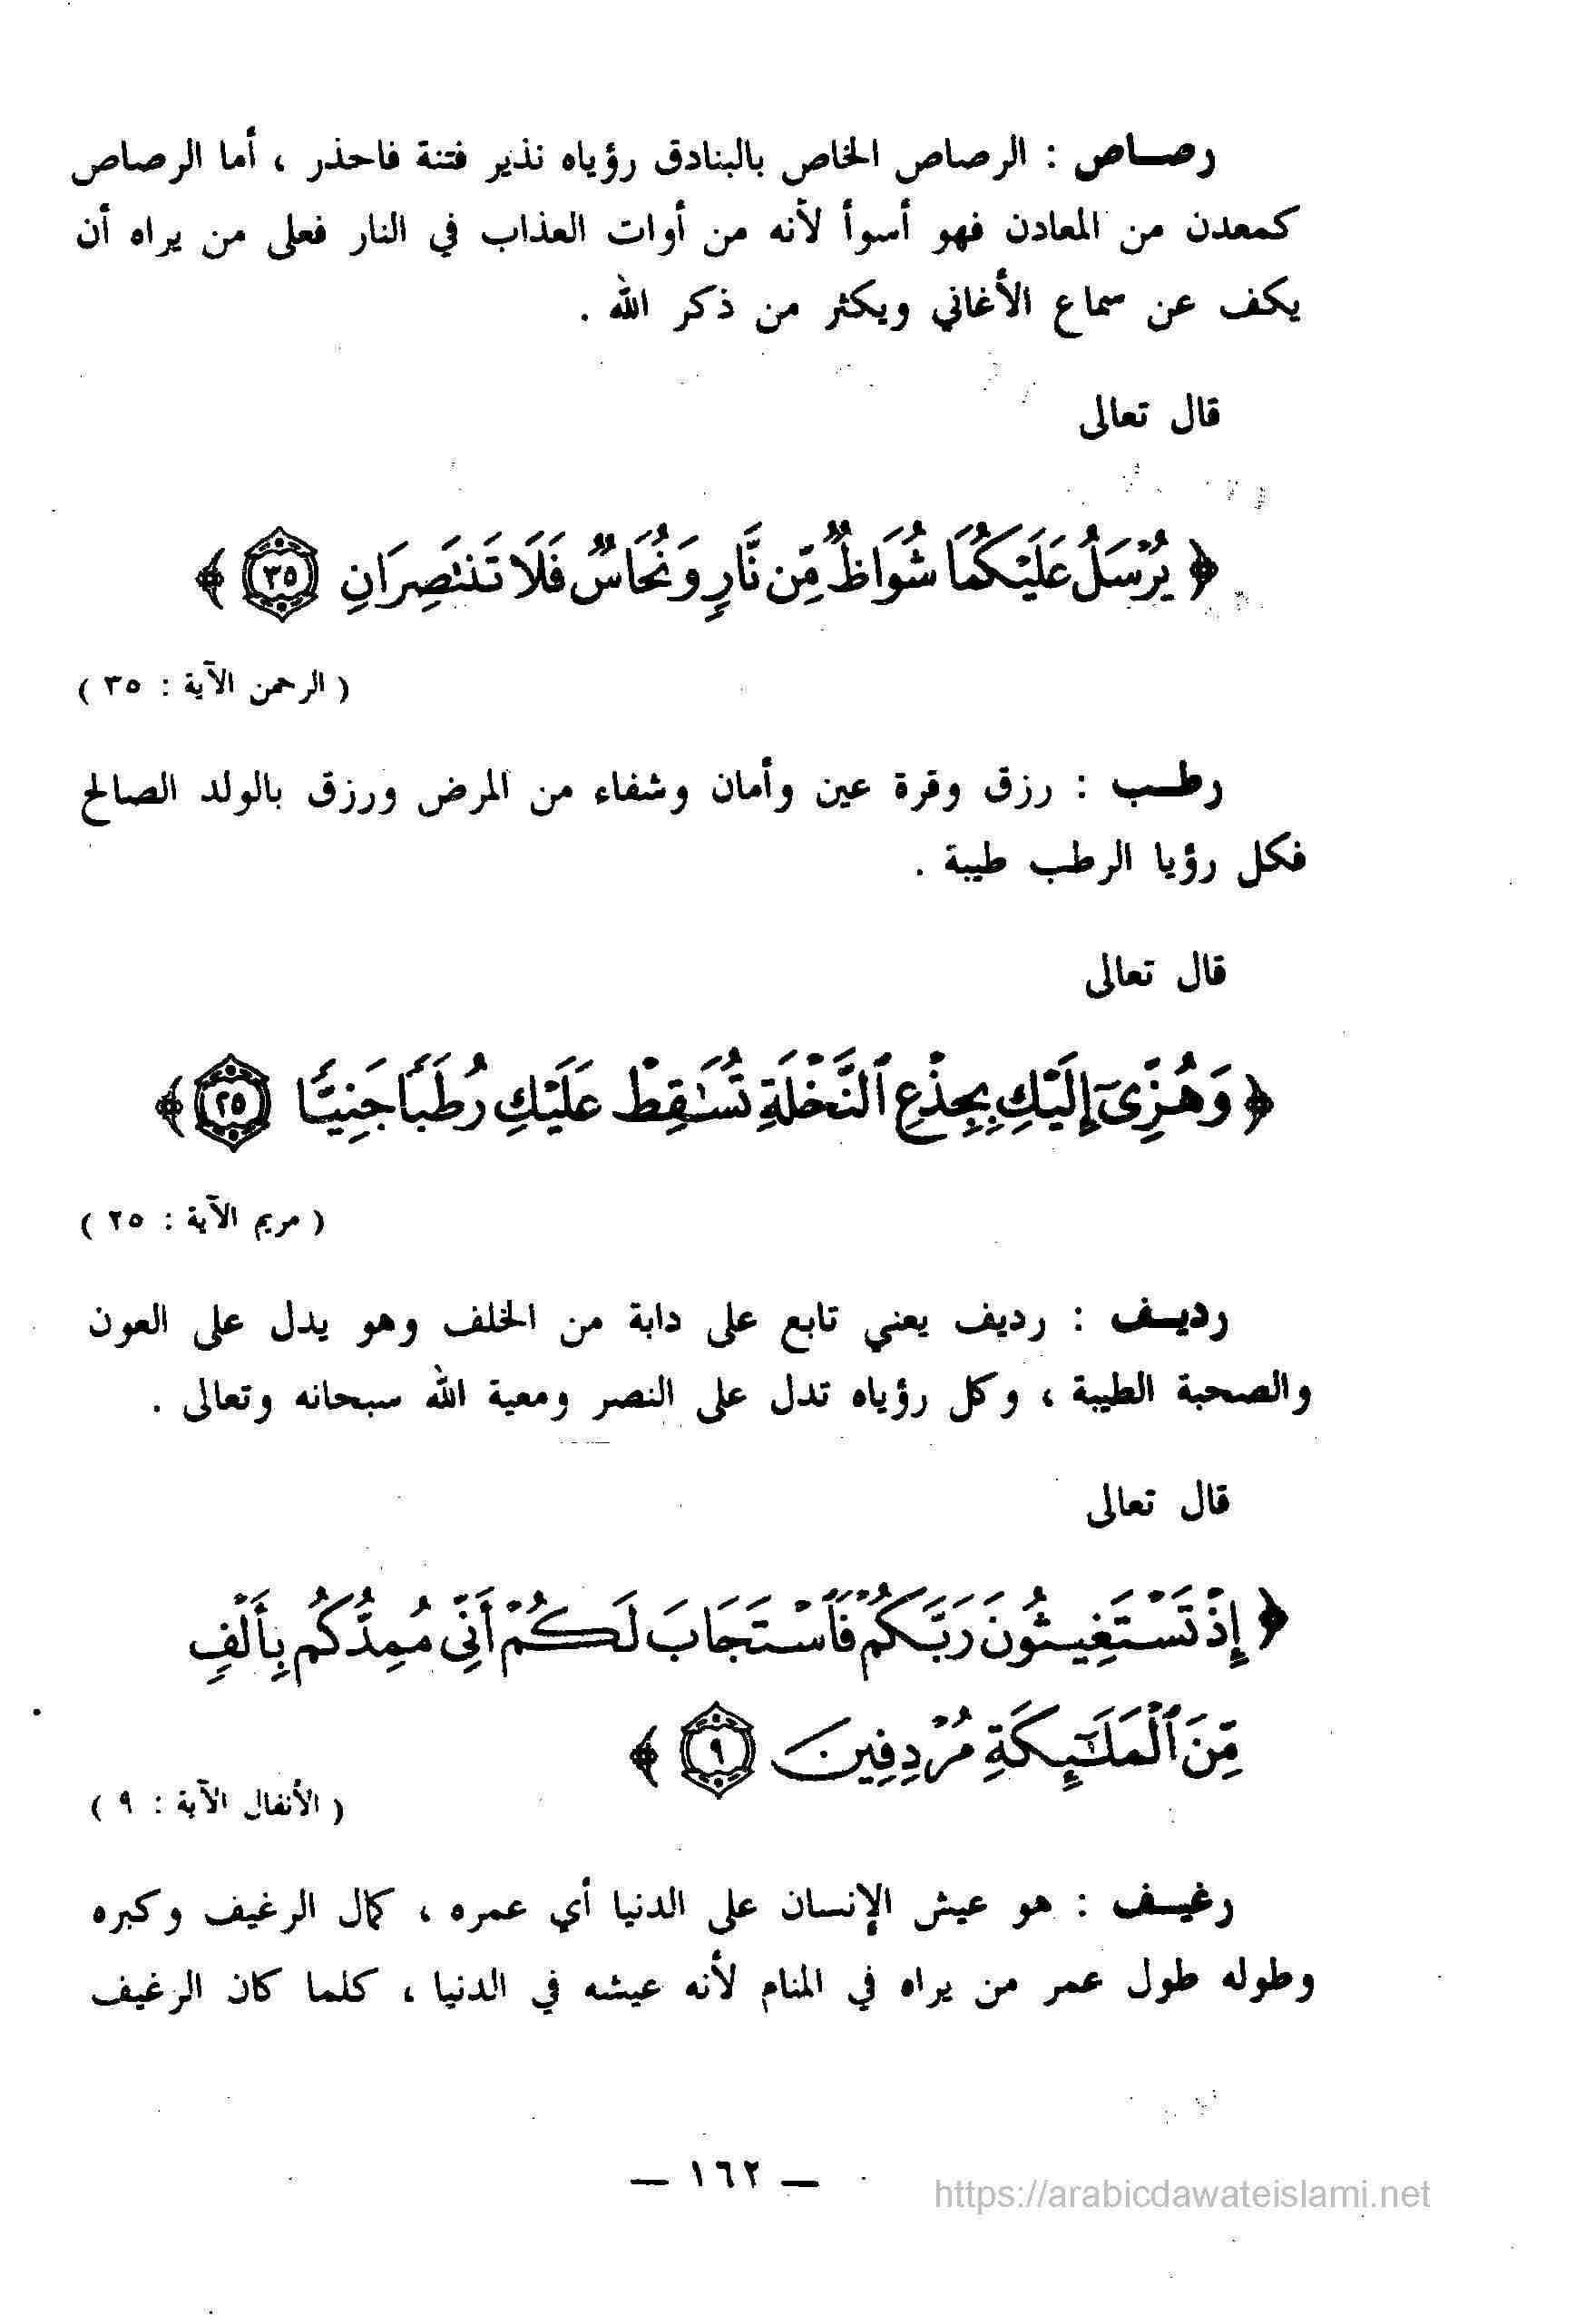 رصــاص : الرصاص الخاص بالبنادق رؤياه نذير فتنة فاحذر ، أما الرصاص
كمعدن من المعادن فهو أسوأ لأنه من أوات العذاب في النار فعلى من يراه أن
يكف عن سماع الأغاني ويكثر من ذكر الله .
قال تعالى
﴿ يُرْسَلُ عَلَيْكُمَا شُوَاظٌ مِّن نَّارٍ وَنُحَاسٌ فَلَا تَنتَصِرَانِ ٣٥ ﴾
( الرحمن الآية : ٣٥ )
رطــب : رزق وقرة عين وأمان وشفاء من المرض ورزق بالولد الصالح
فكل رؤيا الرطب طيبة .
قال تعالى
﴿ وَهُزِّىٓ إِلَيْكِ بِجِذْعِ ٱلنَّخْلَةِ تُسَٰقِطْ عَلَيْكِ رُطَبًا جَنِيًّا ٢٥ ﴾
( مريم الآية : ٢٥ )
رديــف : رديف يعني تابع على دابة من الخلف وهو يدل على العون
والصحبة الطيبة ، وكل رؤياه تدل على النصر ومعية الله سبحانه وتعالى .
قال تعالى
﴿ إِذْ تَسْتَغِيثُونَ رَبَّكُمْ فَٱسْتَجَابَ لَكُمْ أَنِّى مُمِدُّكُم بِأَلْفٍ
مِّنَ ٱلْمَلَٰٓئِكَةِ مُرْدِفِينَ ٩ ﴾
( الأنفال الآية : ٩ )
رغيــف : هو عيش الإنسان على الدنيا أي عمره ، كمال الرغيف وكبره
وطوله طول عمر من يراه في المنام لأنه عيشه في الدنيا ، كلما كان الرغيف
— ١٦٢ —
https://arabicdawateislami.net